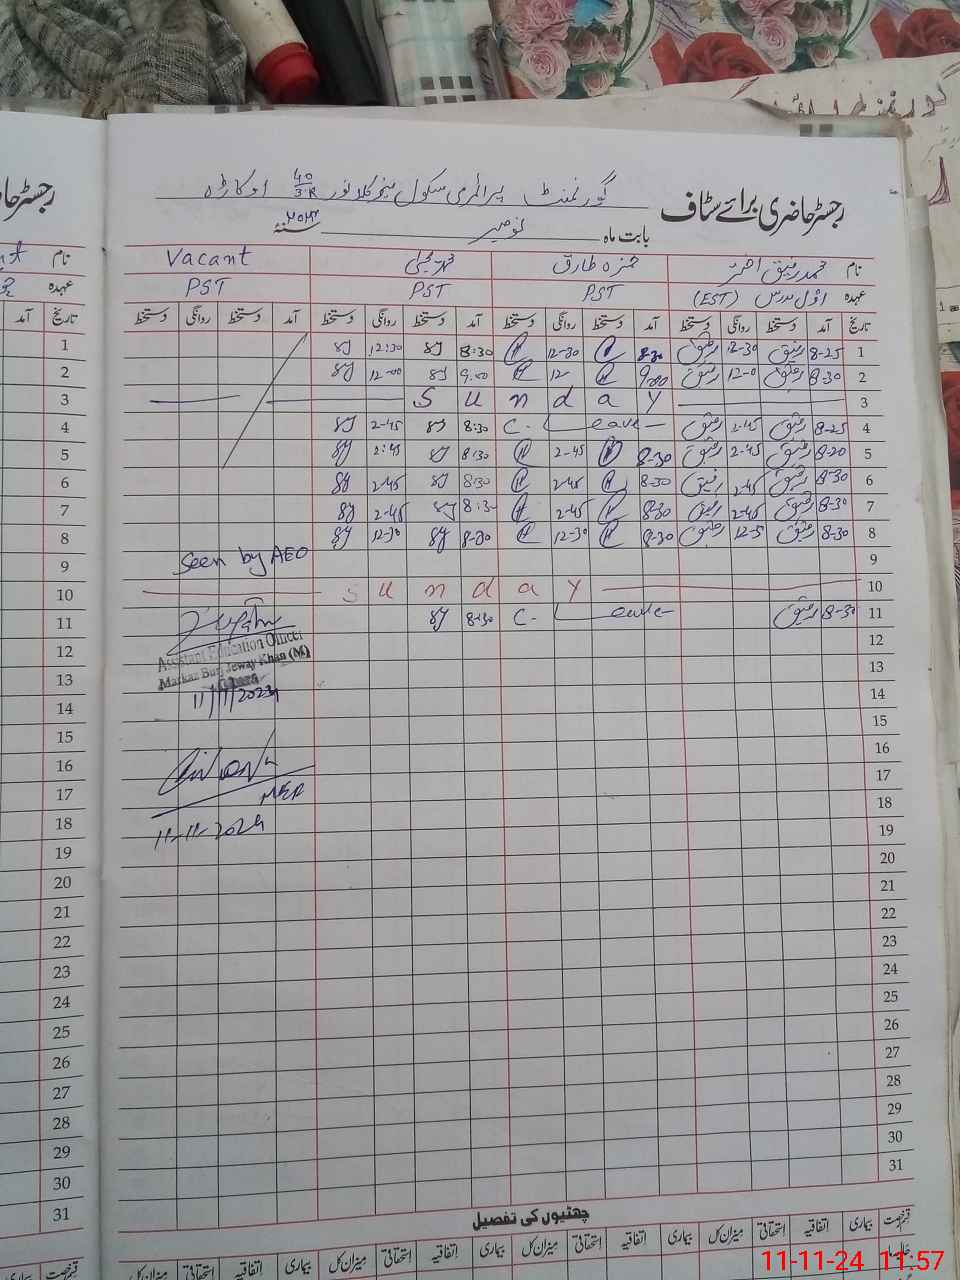 رجسٹر حاضری برائے سٹاف
گورنمنٹ پرائمری سکول 40/3R اوکاڑہ
بابت ماہ نومبر سنہ ۲۰۲۴
نام محمد رفیق اختر حمزہ طارق Vacant
عہدہ اول مدرس (EST) PST PST PST
تاریخ آمد دستخط روانگی دستخط آمد دستخط روانگی دستخط آمد دستخط روانگی دستخط آمد دستخط روانگی دستخط تاریخ
1 8-25 رفیق 12-30 رفیق 8-30 12-30 8:30 12:30 1
2 8-30 رفیق 12-0 رفیق 9-00 12 9.00 12-00 2
3 Sunday 3
4 8-25 رفیق 2-45 رفیق C. Leave 8:30 2-45 4
5 8-20 رفیق 2-45 رفیق 8-30 2-45 8:30 2:45 5
6 8-30 رفیق 2-45 رفیق 8-30 2-45 8:30 2-45 6
7 8-30 رفیق 2-45 رفیق 8-30 2-45 8:30 2-45 7
8 8-30 رفیق رفیق 8-30 12-30 8-30 12-30 8
9 Seen by AEO 9
10 Sunday 10
11 8-30 رفیق C. Leave 8-30 11
12 12
Assistant Education Officer
Markaz Burj Jeway Khan (M)
13 13
11/11/2024
14 14
15 15
16 16
17 17
MEA
18 18
11-11-2024
19 19
20 20
21 21
22 22
23 23
24 24
25 25
26 26
27 27
28 28
29 29
30 30
31 31
چھٹیوں کی تفصیل
قسم رخصت بیماری اتفاقیہ استحقاقی میزان کل بیماری اتفاقیہ استحقاقی میزان کل بیماری اتفاقیہ استحقاقی میزان کل بیماری اتفاقیہ استحقاقی میزان کل
11-11-24 11:57